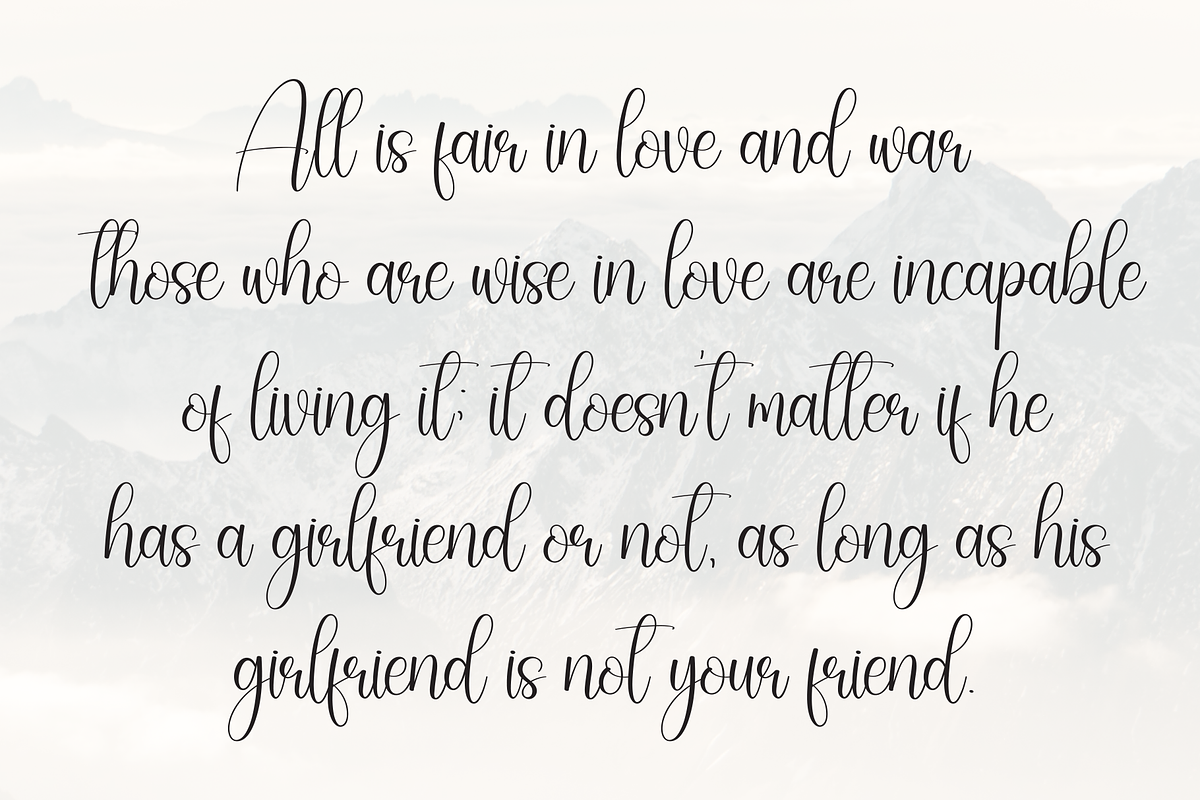 All is fair in love and war
those who are wise in love are incapable
of living it; it doesn't matter if he
has a girlfriend or not, as long as his
girlfriend is not your friend.